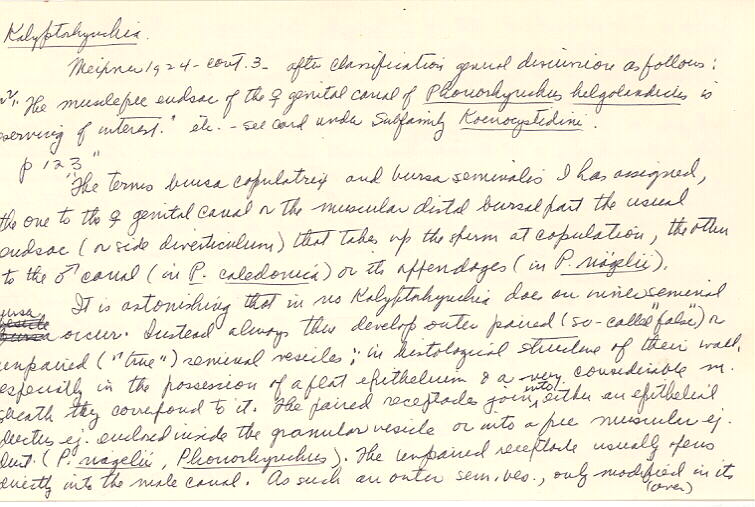 Kalyptorhynchia.
Meixner 1924 - cont. 3 - after classification general discussion as follows:
"The musclefree endsac of the ♀ genital canal of Phonorhynchus helgolandicus is
serving of interest." etc. - see card under Subfamily Koenocystidini.
p 123
"The terms bursa copulatrix and bursa seminalis I has assigned,
the one to the ♀ genital canal or the muscular distal bursal part the usual
endsac (or side diverticulum) that takes up the sperm at copulation, the other
to the ♂ canal (in P. caledonica) or its appendages (in P. nägelii).
It is astonishing that in no Kalyptorhynchia does an inner seminal
bursa occur. Instead always thus develop outer paired (so-called "false") or
unpaired ("true") seminal vesicles; in histological structure of their wall,
especially in the possession of a flat epithelium & a very considerable m.
sheath they correspond to it. The paired receptacles join into either an epithelial
ductus ej. enclosed inside the granular vesicle or into a free muscular ej.
duct. (P. nägelii, Phonorhynchus). The unpaired receptacle usually opens
directly into the male canal. As such an outer sem. ves., only modified in its
(over)